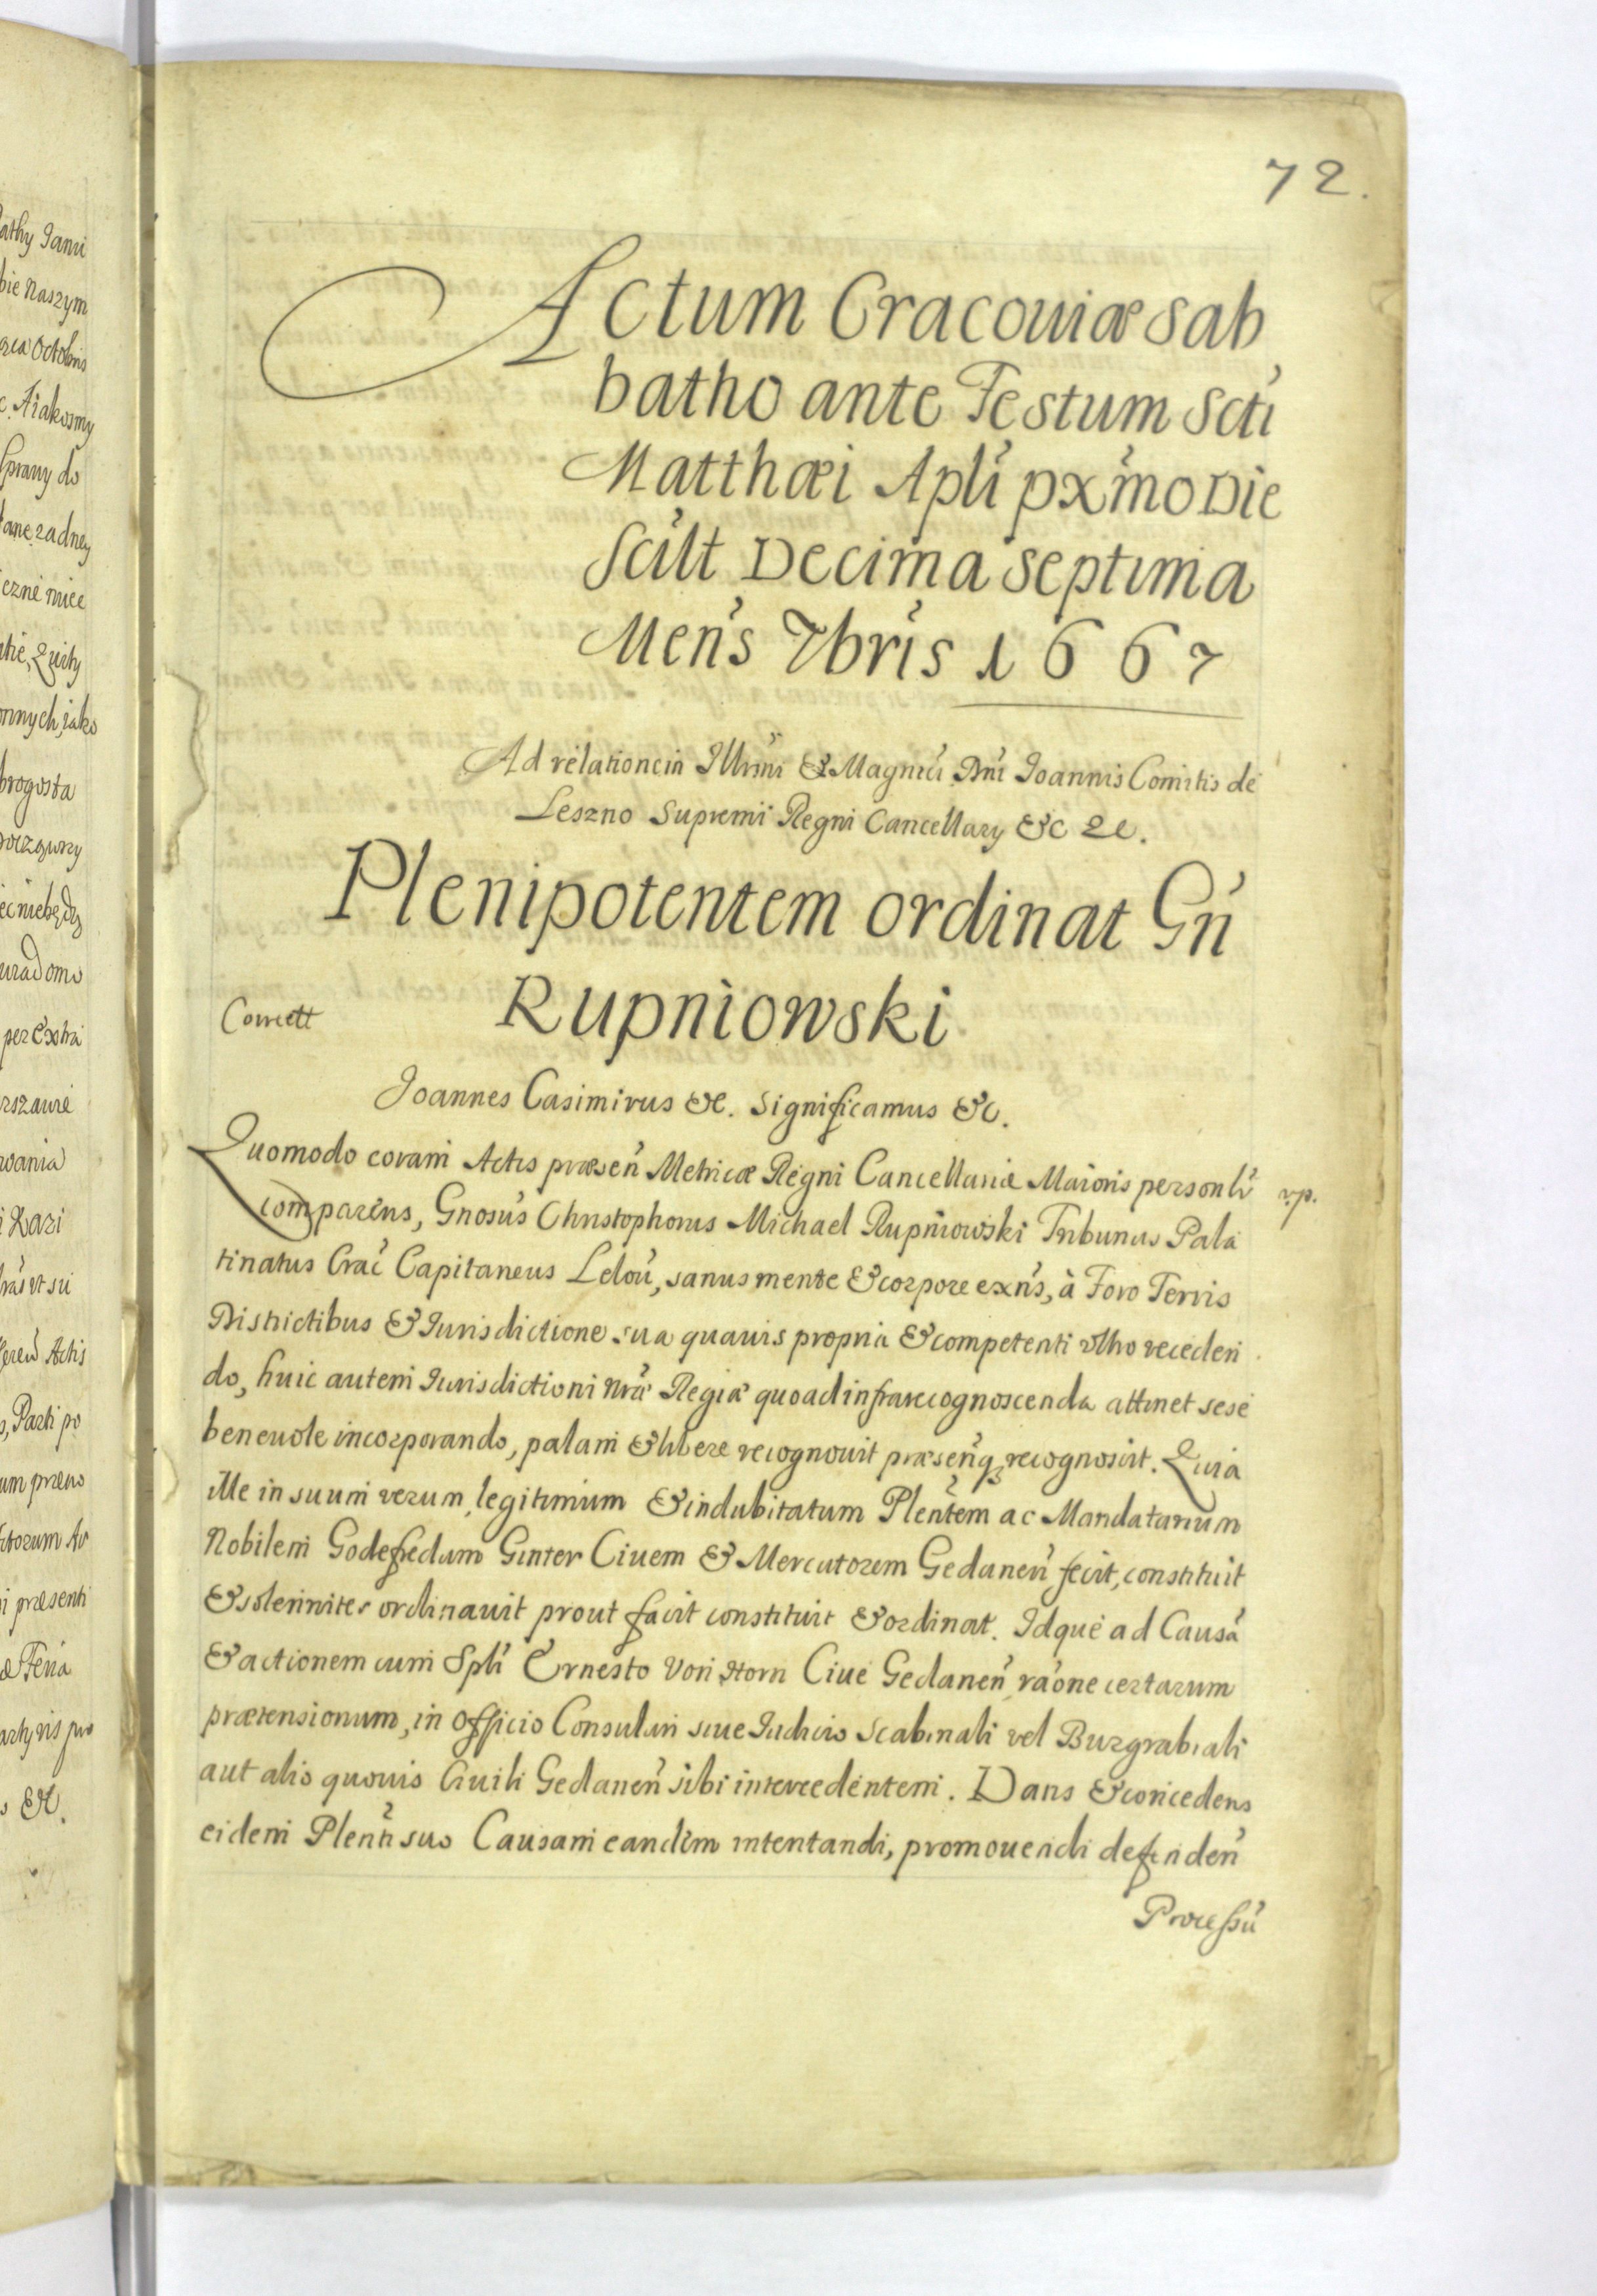 72.
Actum Cracouiæ Sab
batho ante Festum Scti
Matthæi Apli pxmo Die
Scilt Decima Septima
Mens 7bris 1667
Ad relationem Illrmi & Magnici Dni Ioannis Comitis de
Leszno Supremi Regni Cancellary &c &c.
Plenipotentem ordinat Gn
Rupniowski
Correctt
Joannes Casimirus &c. Significamus &c.
Quomodo coram Actis præsen Metricæ Regni Cancellariæ Maioris personlr
comparens, Gnosus Christophorus Michael Rupniowski Tribunus Pala
tinatus Crac Capitaneus Lelou, sanus mente & corpore exns, à Foro Terris
Districtibus & Iurisdictione sua quauis propria & competenti receden
do, huic autem Iurisdictioni nræ Regiæ quoad infrarecognoscenda attinet sese
beneuole incorporando, palam & libere recognouit præsenq recognoscit. Quia
ille in suum verum, legitimum & indubitatum Plentem ac Mandatarium
Nobilem Godefredum Ginter Ciuem & Mercatorem Gedanen fecit, constituit
& solenniter ordinauit prout facit constituit & ordinat. Idque ad Causã
& actionem cum Spli Ernesto Von Horn Ciue Gedanen raone certarum
prætensionum, in Officio Consulari siue Iudicio Scabinali vel Burgrabiali
aut alio quouis Ciuili Gedanen sibi intercedentem. Dans & concedens
eidem Plenti suo Causam eandem intentandi, promouendi defenden
Processu